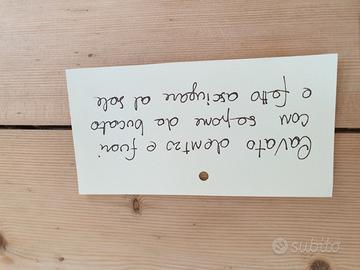 Lavato dentro e fuori
con sapone da bucato
e fatto asciugare al sole
subito